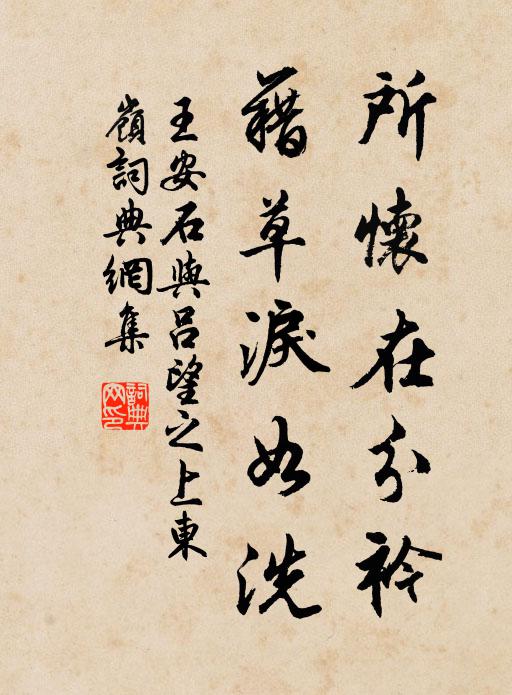 所懷在分衿
藉草淚如洗
王安石與呂望之上東
嶺詞典網集
詞典
网印